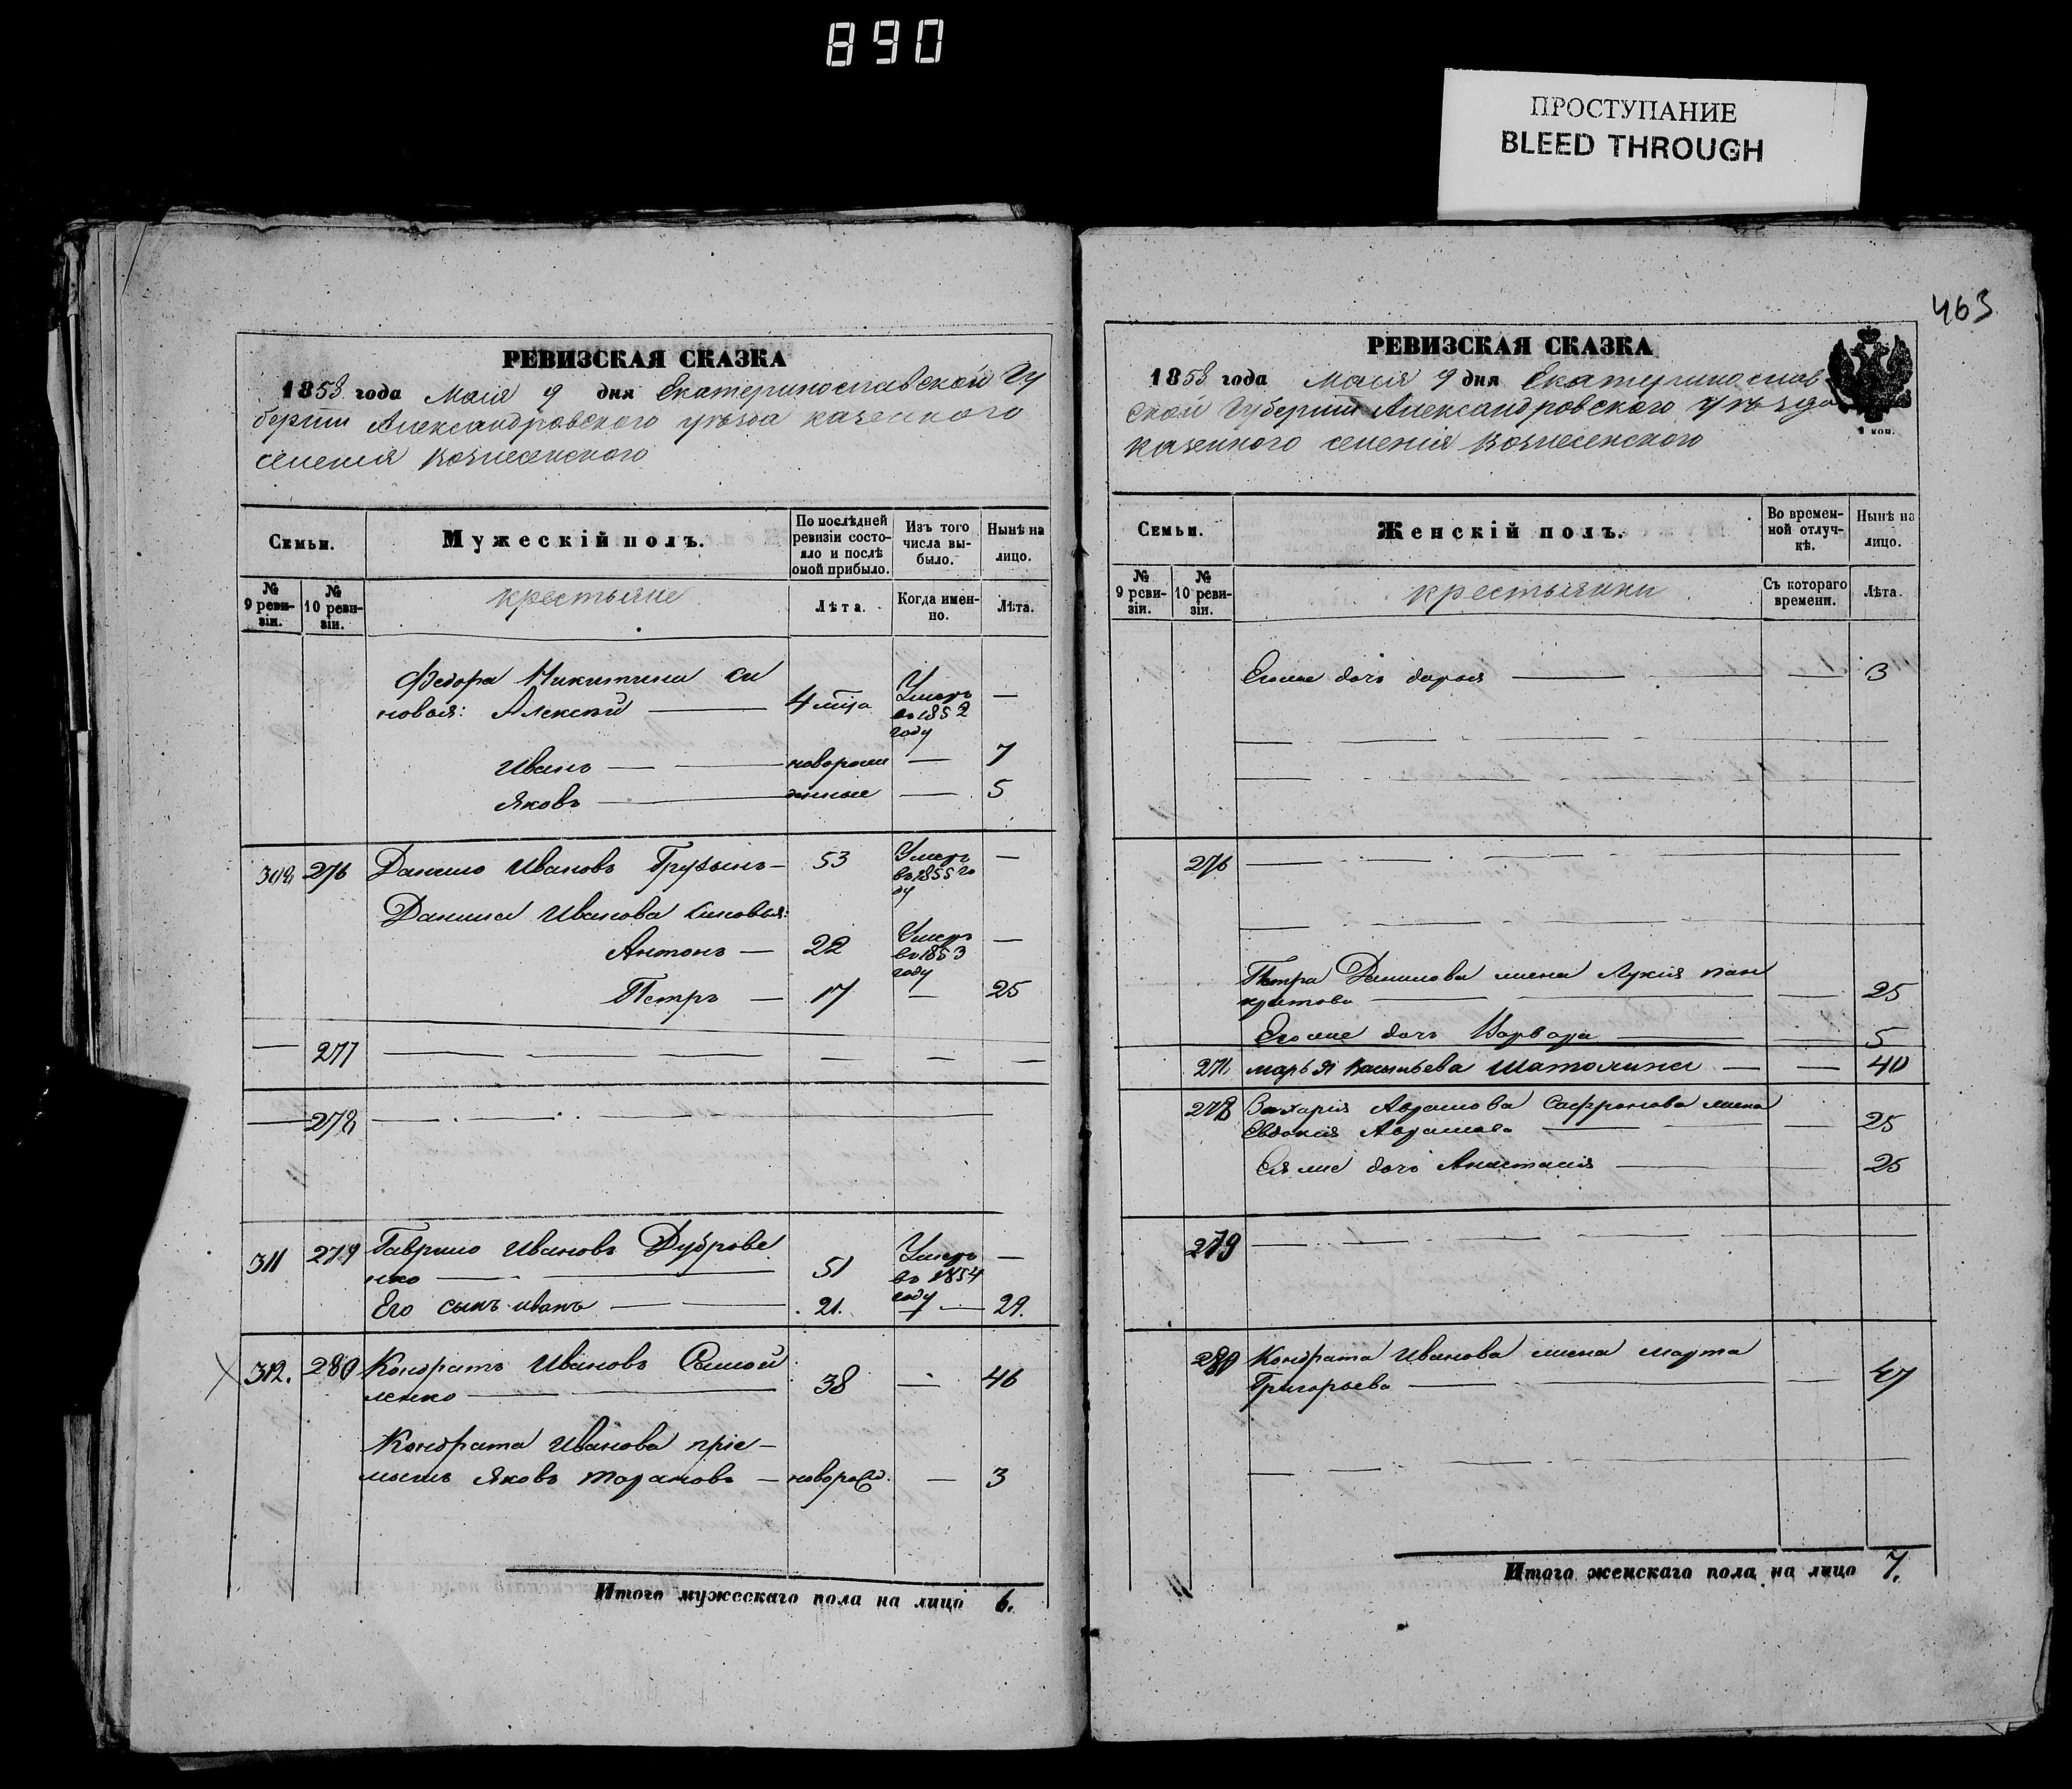 890
ПРОСТУПАНИЕ
BLEED THROUGH
463
РЕВИЗСКАЯ СКАЗКА
1858 года Маія 9 дня Екатеринославской Гу
берніи Александровского уѣзда казенного
селенія Вознесенского
Семьи.
Мужескій полъ.
По послѣдней ревизіи состояло и послѣ оной прибыло.
Изъ того числа выбыло.
Нынѣ на лицо.
№ 9 ревизіи.
№ 10 ревизіи.
крестьяне
Лѣта.
Когда именно.
Лѣта.
Федора Никитина си
новья: Алексѣй — 4 мца Умеръ в 1852 году —
Иванъ — новорож — 7
Яковъ — денные — 5
308 276 Данило Ивановъ Грузынъ — 53 Умеръ в 1855 го ду —
Данила Иванова синовья:
Антонъ — 22 Умеръ в 1853 году —
Петръ — 17 — 25
— 277 — — — —
— 278 —
311 279 Гаврило Ивановъ Дуброве
нко — 51 Умеръ в 1854 году —
Его сынъ иванъ — 21. — 29.
312. 280 Кондратъ Ивановъ Самой
ленко — 38 — 46
Кондрата Иванова пріе-
мышъ Яковъ Тарановъ — новорожд. — 3
Итого мужескаго пола на лицо 6.
РЕВИЗСКАЯ СКАЗКА
1858 года Маія 9 дня Екатеринослав
ской Губерніи Александровского уѣзда
казенного селенія Вознесенского
1 коп.
Семьи.
Женскій полъ.
Во временной отлучкѣ.
Нынѣ на лицо.
№ 9 ревизіи.
№ 10 ревизіи.
крестьянки
Съ котораго времени.
Лѣта.
Егоже дочь дарья — — 3
276 —
Петра Данилова жена Лукія пан
кратова — — 25
Егоже дочь Варвара — — 5
277 марья Васильева — — 40
278 Захарія Абрамова Сафронова жена
Евдокія Абрамова — — 25
Еяже дочь Анастасія — 25
279 —
280 Кондрата Иванова жена марта
Григорьева — — 47
Итого женскаго пола на лицо 7.